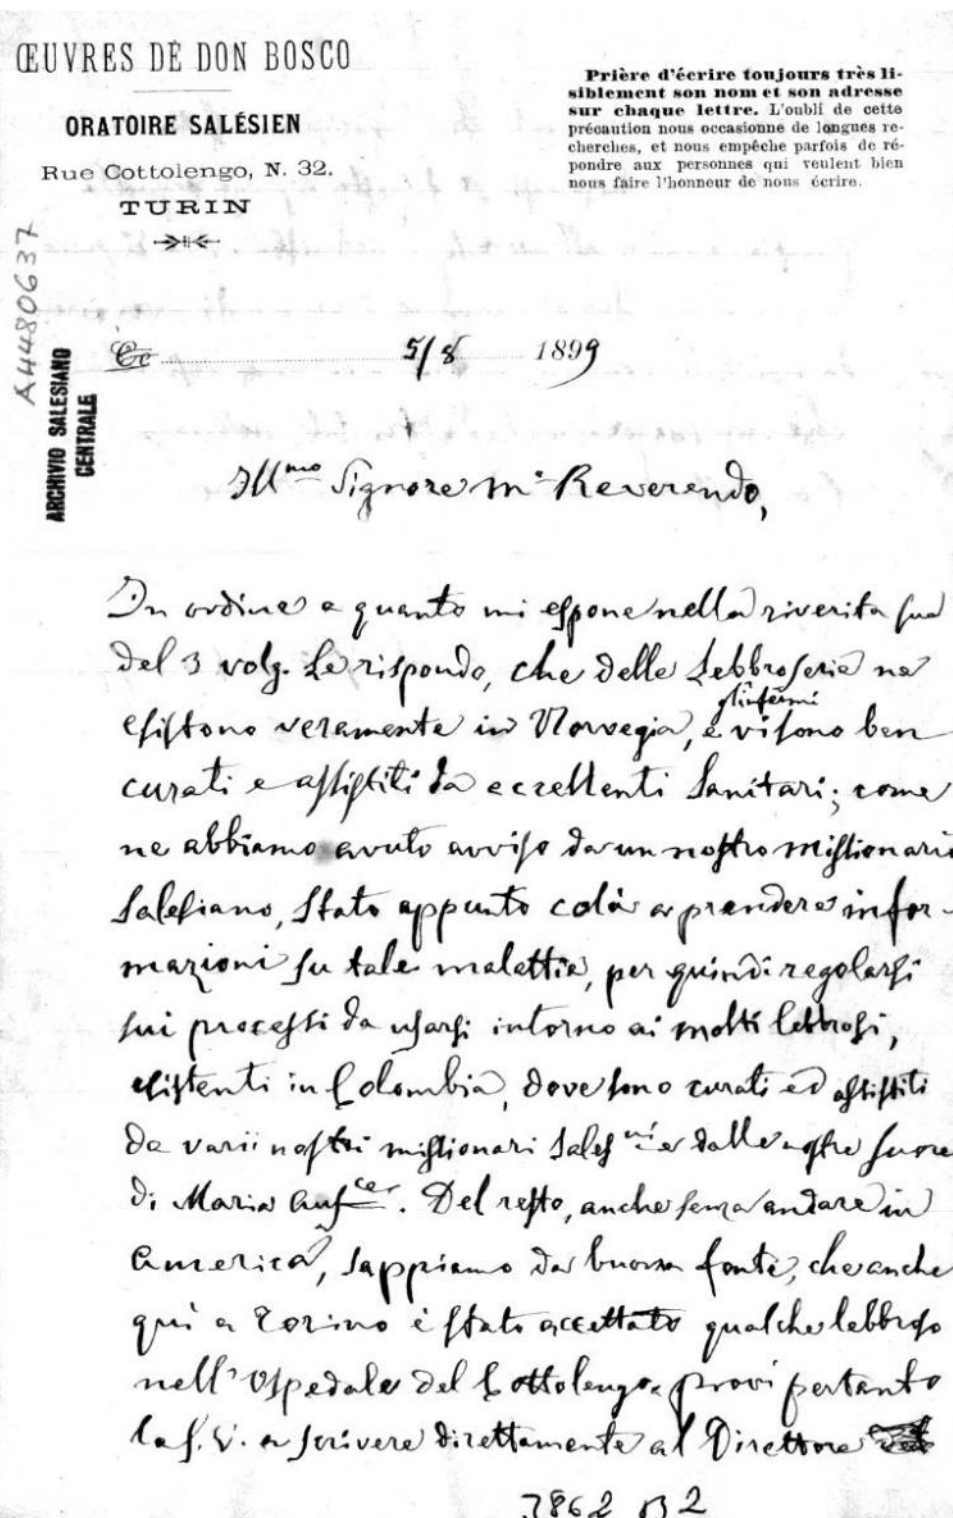 ŒUVRES DE DON BOSCO
ORATOIRE SALÉSIEN
Rue Cottolengo, N. 32.
TURIN
Prière d'écrire toujours très li-
siblement son nom et son adresse
sur chaque lettre. L'oubli de cette
précaution nous occasionne de longues re-
cherches, et nous empêche parfois de ré-
pondre aux personnes qui veulent bien
nous faire l'honneur de nous écrire.
AH480637
ARCHIVIO SALESIANO
CENTRALE
Ce 5/8 1899
Illmo Signore M° Reverendo,
In ordine a quanto mi espone nella riverita sua
del 3 volg. Le rispondo, che delle Lebbroserie ne
esistono veramente in Norvegia, e gl'infermi vi sono ben
curati e assistiti da eccellenti Sanitari; come
ne abbiamo avuto avviso da un nostro missionario
Salesiano, stato appunto colà a prendere infor-
mazioni su tale malattia, per quindi regolarsi
sui processi da usarsi intorno ai molti lebbrosi,
esistenti in Colombia, dove sono curati ed assistiti
da varii nostri missionari Salesni e dalle nostre suore
di Maria Ausce. Del resto, anche senza andare in
America, sappiamo da buona fonte, che anche
qui a Torino è stato accettato qualche lebbroso
nell'Ospedale del Cottolengo. provi pertanto
la S. V. a scrivere direttamente al Direttore
3862 B 2